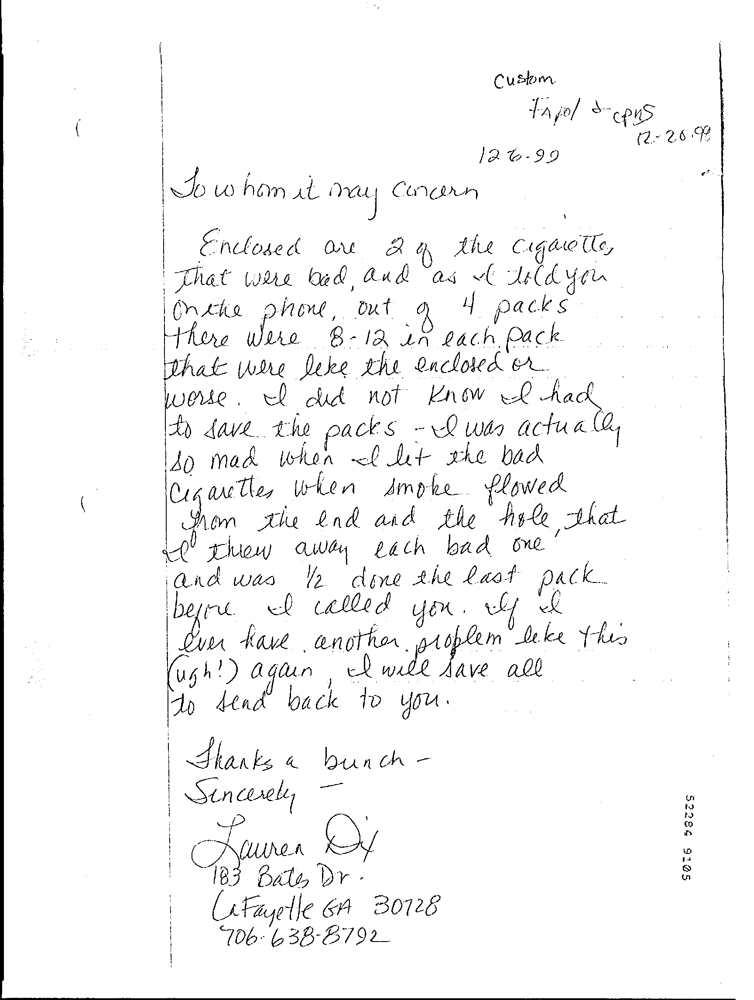 Custom
& cpns
12-20.99
12 6.99
To whom it may concern
Enclosed are 2 of the cigarettes
that were bad, and as I told you
on the phone, out of 4 packs
there were 8-12 in each pack
that were like the enclosed or
worse. I did not know I had
to save the packs - I was actually
so mad when I lit the bad
cigarettes when smoke flowed
from the end and the hole, that
I threw away each bad one
and was 1/2 done the last pack
before I called you. If I
ever have another problem like this
(ugh!) again, I will save all
to send back to you.
Thanks a bunch -
Sincerely -
Lauren Dix
183 Bates Dr.
LaFayette GA 30728
706-638-8792
52284 9105